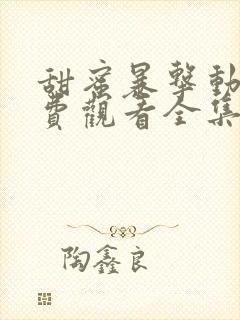 甜蜜暴擊動
費觀看全集
陶鑫良